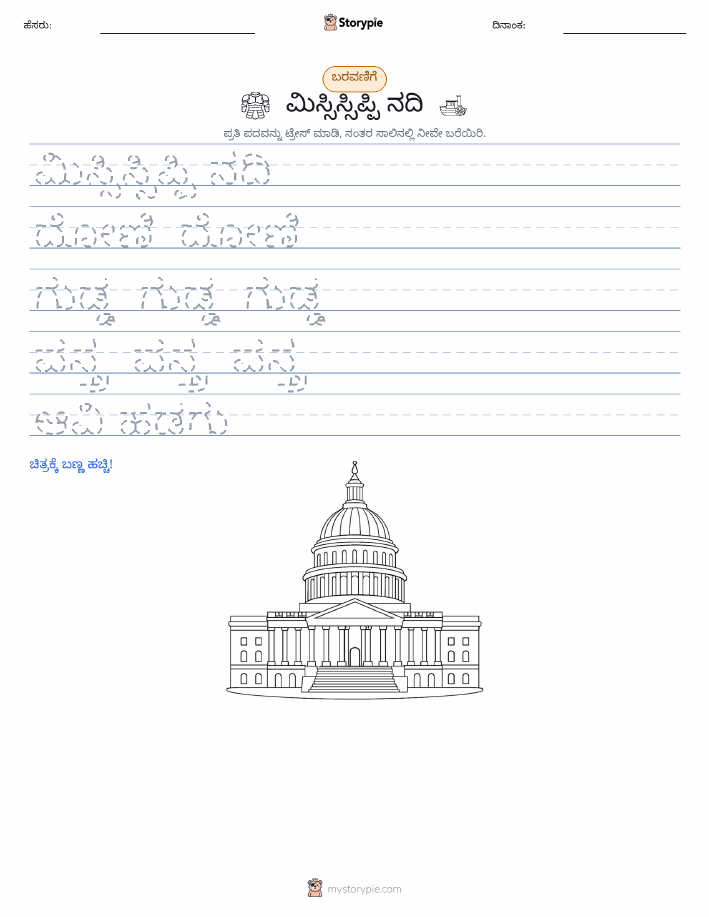 ಹೆಸರು:
Storypie
ದಿನಾಂಕ:
ಬರವಣಿಗೆ
ಮಿಸ್ಸಿಸ್ಸಿಪ್ಪಿ ನದಿ
ಪ್ರತಿ ಪದವನ್ನು ಟ್ರೇಸ್ ಮಾಡಿ, ನಂತರ ಸಾಲಿನಲ್ಲಿ ನೀವೇ ಬರೆಯಿರಿ.
ಮಿಸ್ಸಿಸ್ಸಿಪ್ಪಿ ನದಿ
ದೋಣಿ ದೋಣಿ
ಚಿತ್ರಕ್ಕೆ ಬಣ್ಣ ಹಚ್ಚಿ!
mystorypie.com